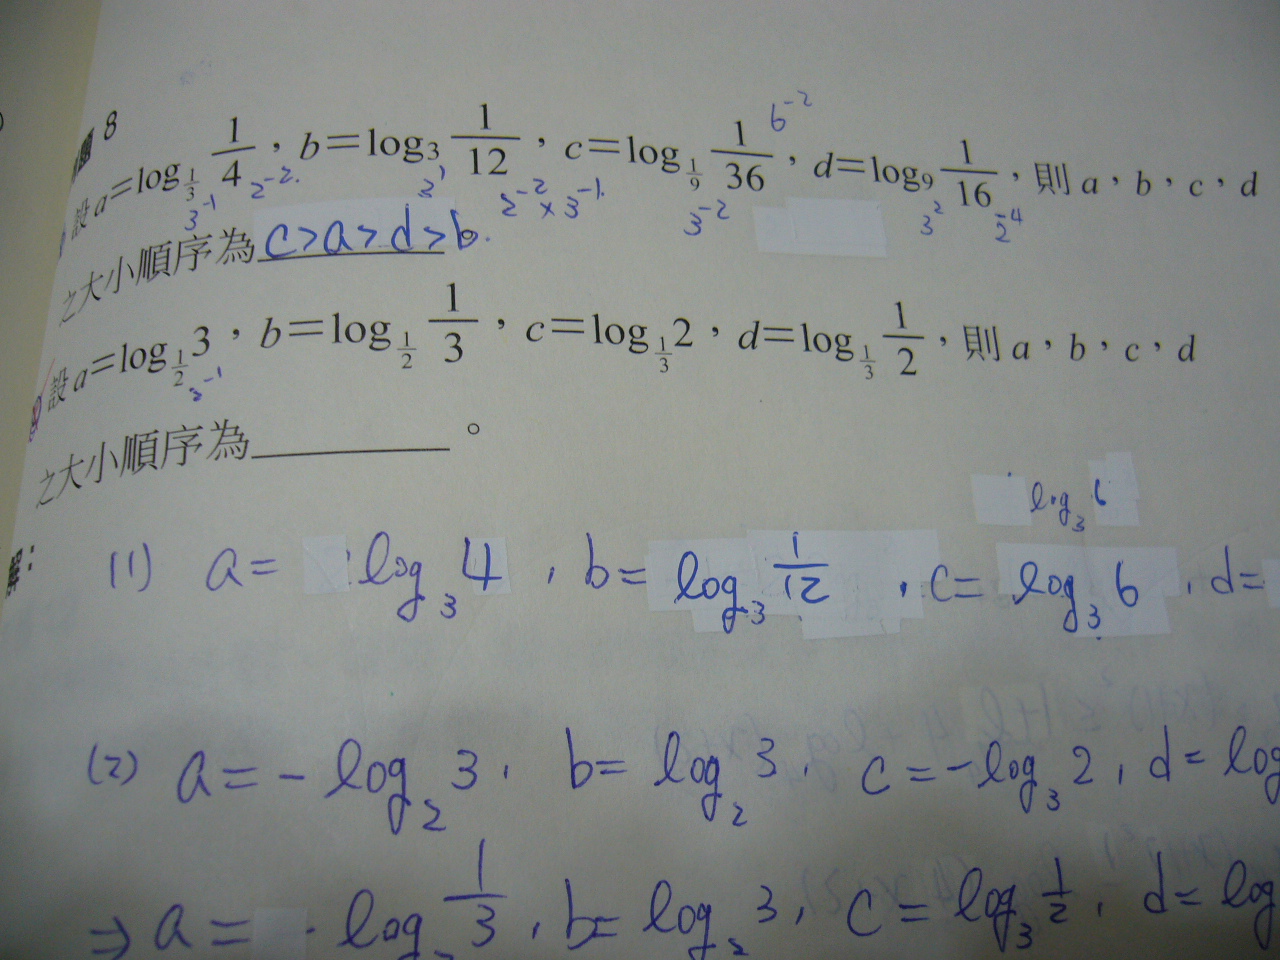 8
設 a=log_{1/3} 1/4，b=log₃ 1/12，c=log_{1/9} 1/36，d=log₉ 1/16，則 a，b，c，d
6⁻²
3⁻¹ 2⁻². 3¹ 2⁻²×3⁻¹. 3⁻² 3² 2⁻⁴
之大小順序為 c>a>d>b。
設 a=log_{1/2} 3，b=log_{1/2} 1/3，c=log_{1/3} 2，d=log_{1/3} 1/2，則 a，b，c，d
3⁻¹
之大小順序為________。
log₃ 6
解：
(1) a= log₃ 4，b= log₃ 1/12，c= log₃ 6，d=
(2) a=-log₂ 3，b= log₂ 3，c=-log₃ 2，d= log
⇒ a= -log₂ 1/3，b= log₂ 3，c= log₃ 1/2，d= log